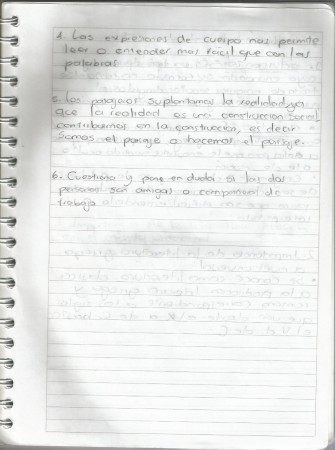 4. Las expresiones de cuerpo nos permite
leer o entender mas facil que con las
palabras
5. Los pasajeros suplantamos la realidad ya
que la realidad es una construccion social
contribuimos en la construccion, es decir
somos el paisaje o hacemos el paisaje.
6. Cuestiona y pone en duda si las dos
personas son amigas o compañeros de
trabajo